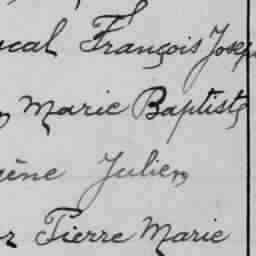 cal François Joseph
Marie Baptiste
ène Julien
Pierre Marie